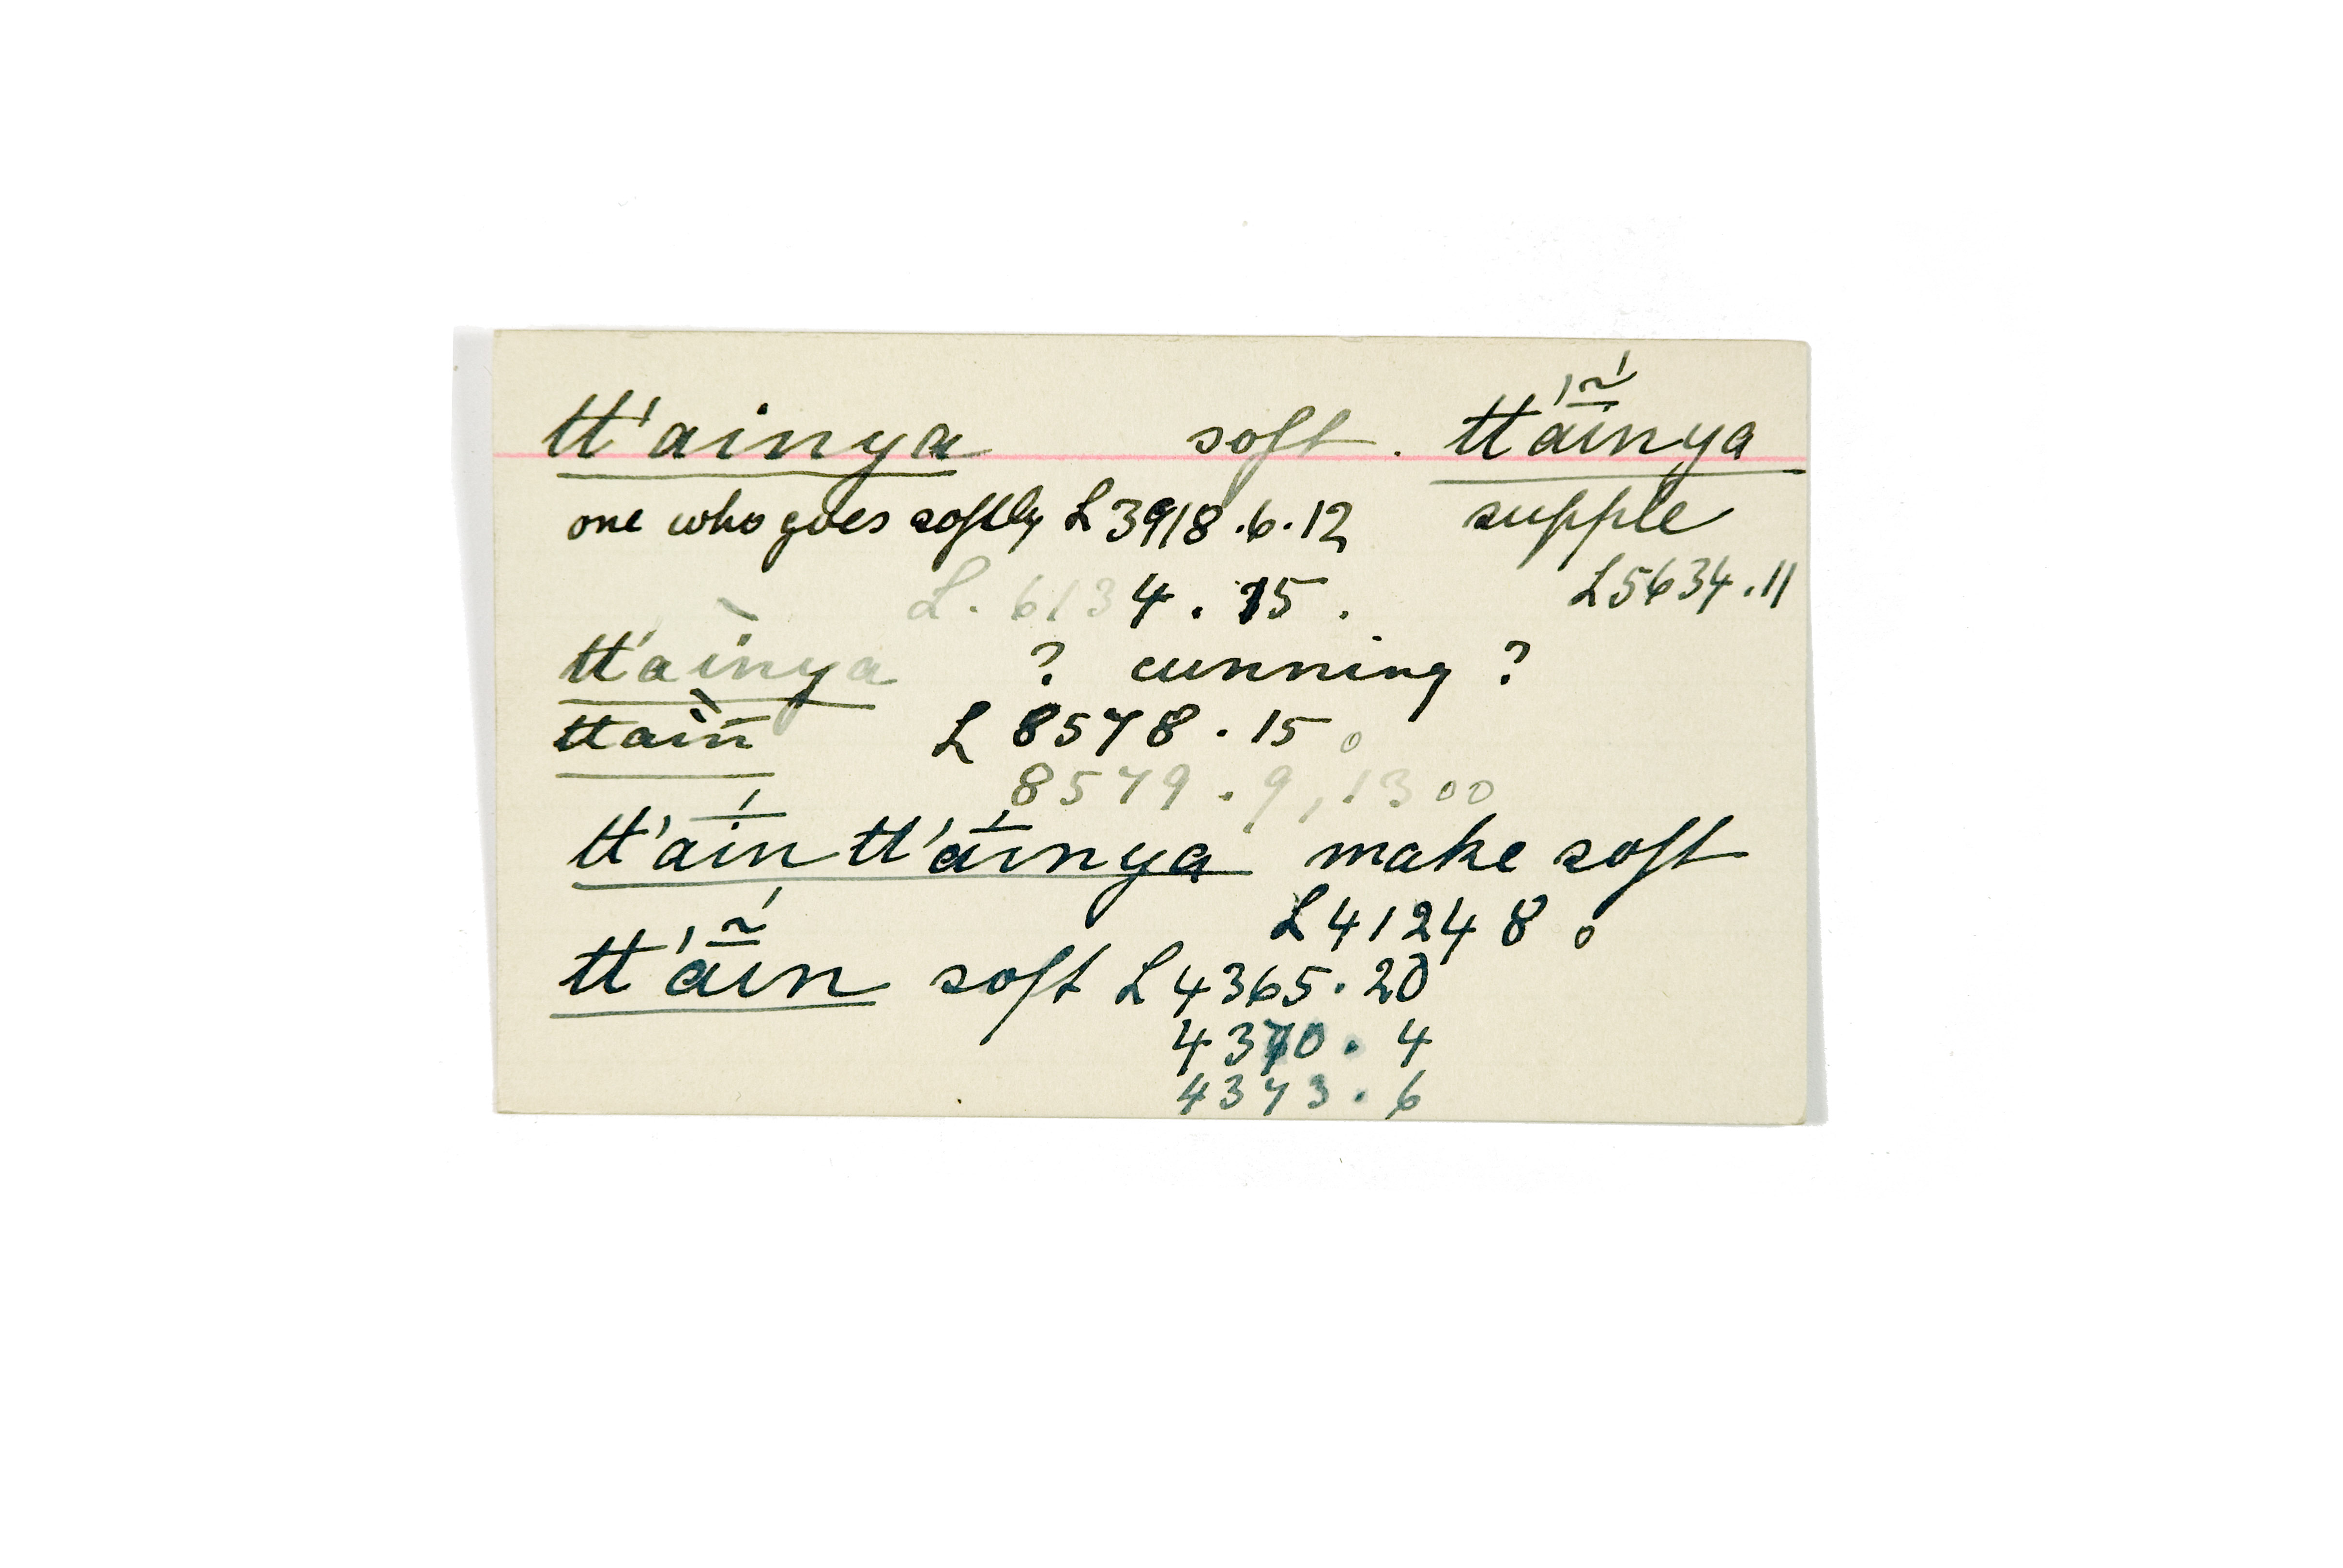 tt'ainya soft. tt'ā̰́inya
one who goes softly L3918.6.12 supple
L. 6134.15. L5634.11
tt'aìnya ? cunning ?
ttaìn̄ L 8578.15 o
8579.9,13 oo
tt'aī́n tt'ā́inya make soft
L41248 o
tt'ā̰́in soft L4365.20
4370.4
4373.6